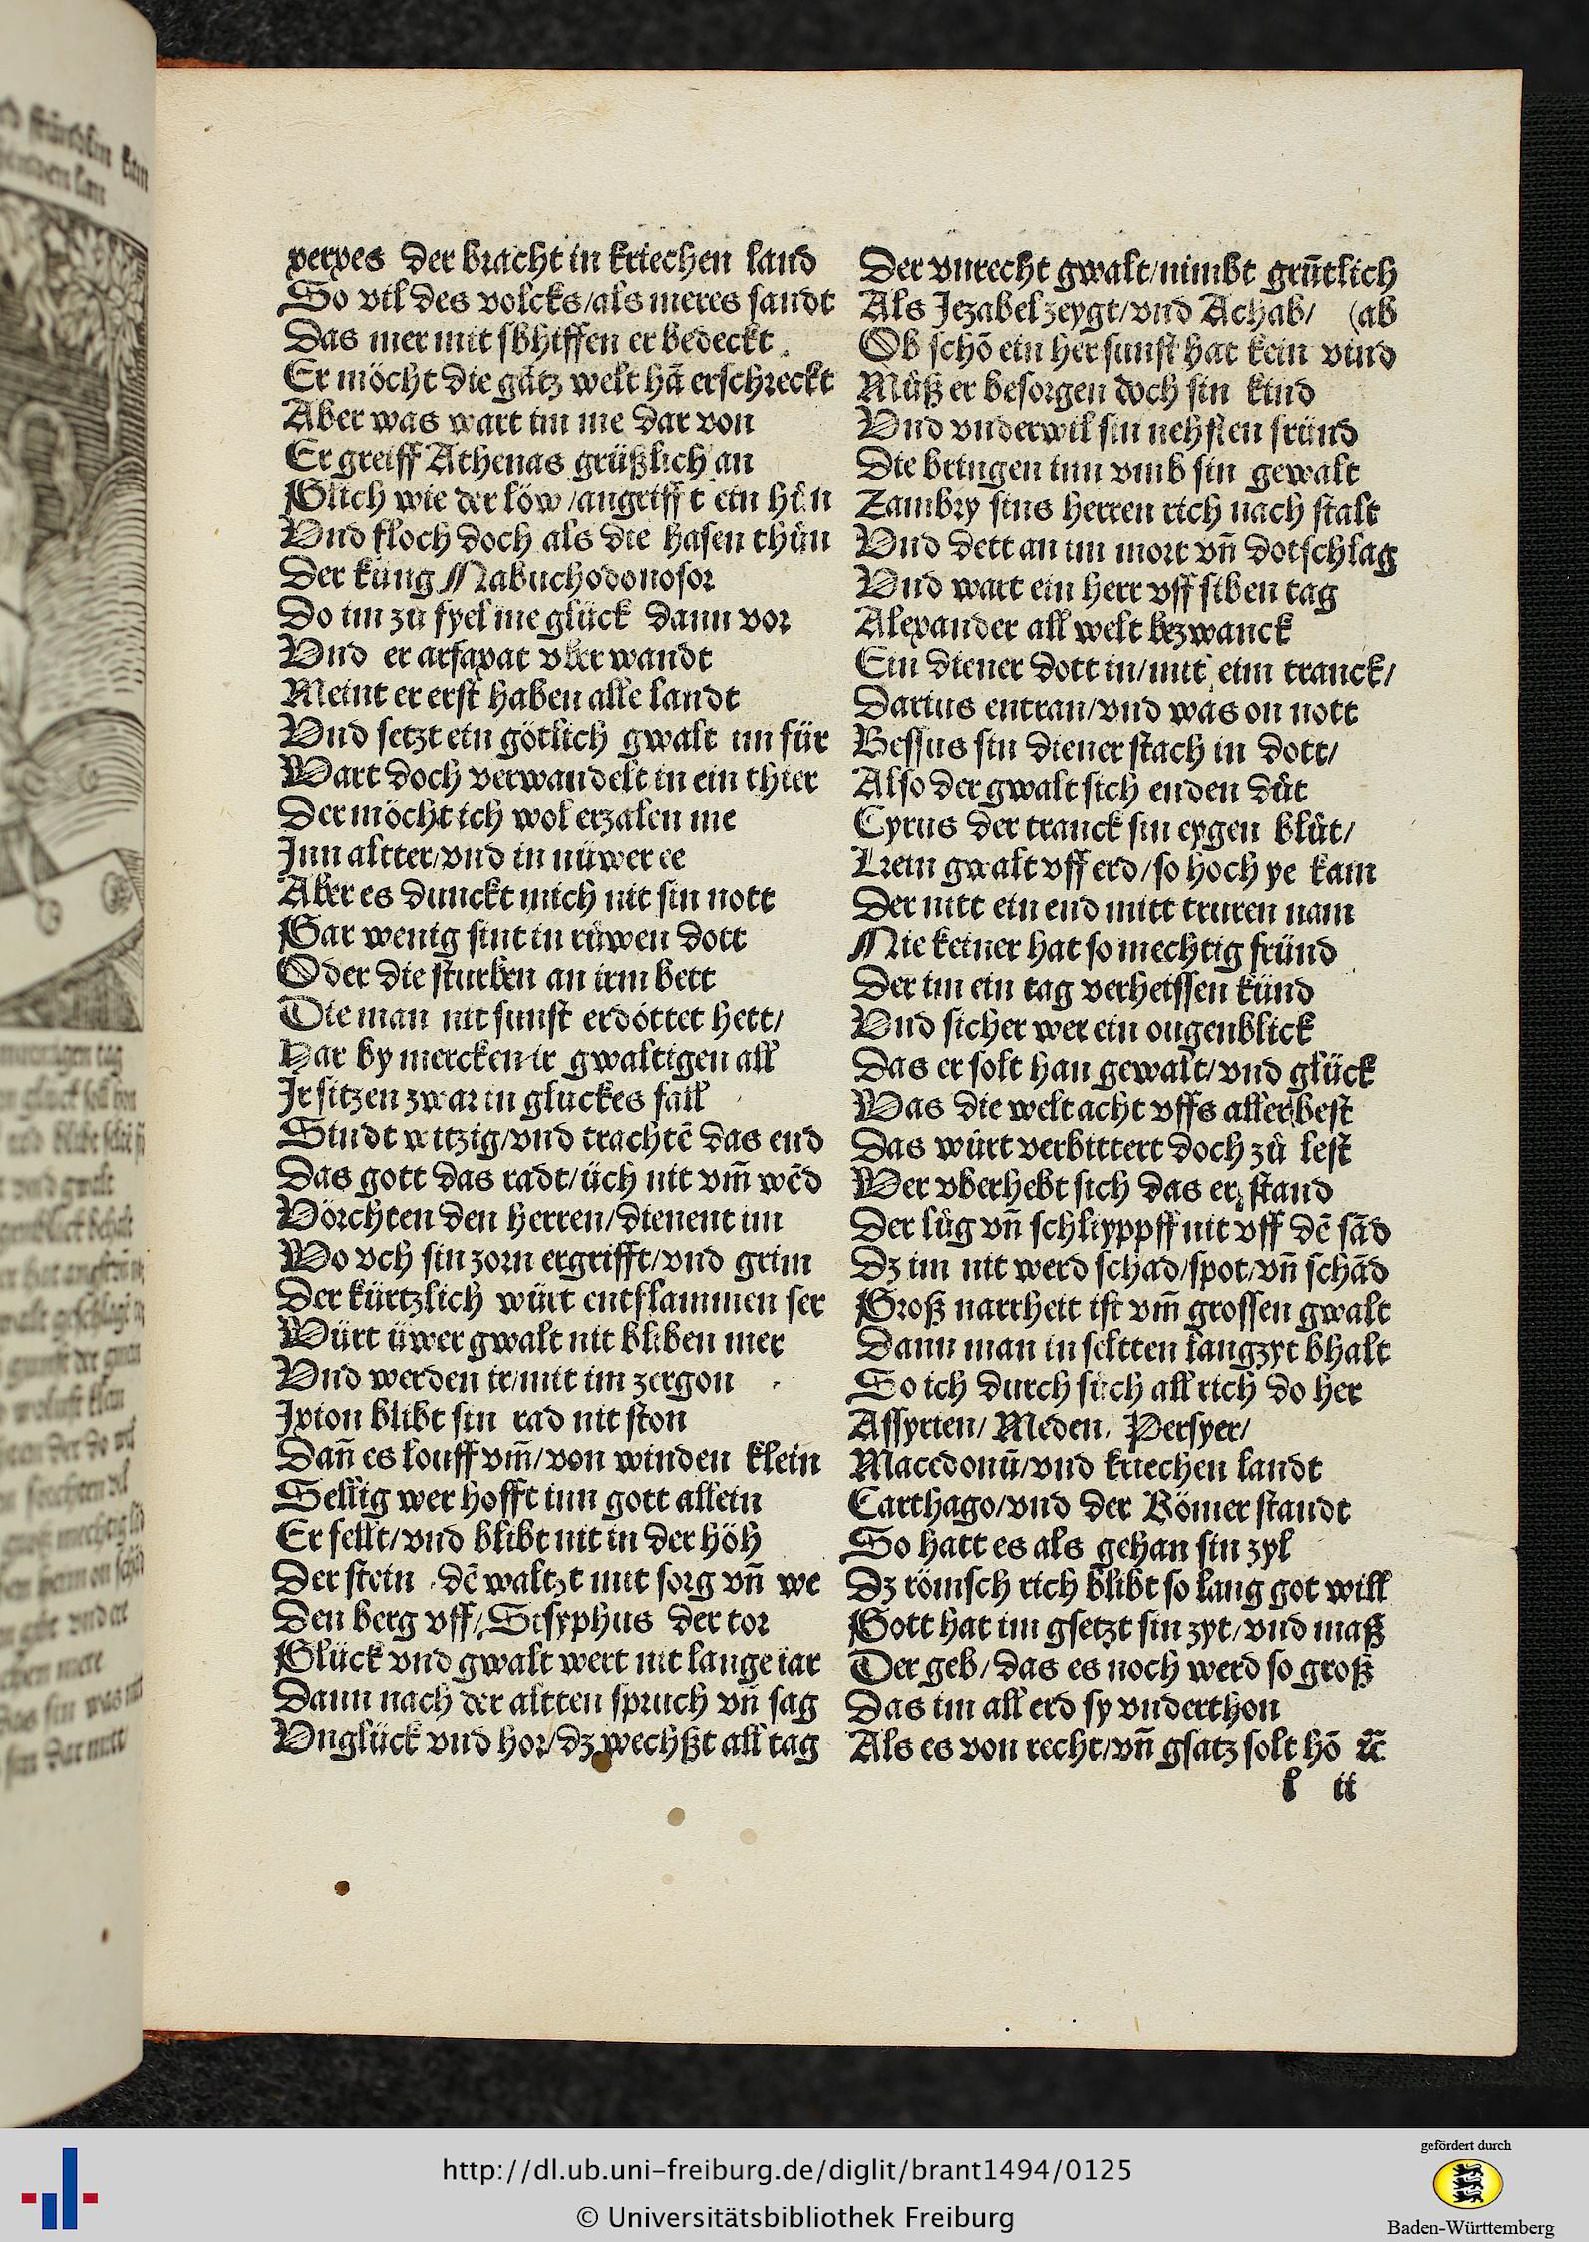 xerxes der bracht in kriechen land
So vil des volcks/als meres sandt
Das mer mit sbhiffen er bedeckt
Er möcht die gātz welt hā erschreckt
Aber was wart im me dar von
Er greiff Athenas grüßlich an
Glich wie der löw/angrifft ein hůn
Vnd floch doch als die hasen thůn
Der küng Nabuchodonosor
Do im zů fyel me glück dann vor
Vnd er arfaxat vberwandt
Meint er erst haben alle landt
Vnd setzt ein götlich gwalt im für
Wart doch verwandelt in ein thier
Der möcht ich wol erzalen me
Inn altter/vnd in nüwer ee
Aber es dunckt mich nit sin nott
Gar wenig sint in rüwen dott
Oder die sturben an irm bett
Die man nit sunst erdöttet hett/
Har by mercken ir gwaltigen all
Ir sitzen zwar in gluckes fall
Sindt witzig/vnd trachtē das end
Das gott das radt/üch nit vm̄ wēd
Vörchten den herren/dienent im
Wo vch sin zorn ergrifft/vnd grim
Der kürtzlich würt entflammen ser
Würt üwer gwalt nit bliben mer
Vnd werden ir/mit im zergon
Ixion blibt sin rad nit ston
Dañ es louff vm̄/von winden klein
Sellig wer hofft inn gott allein
Er fellt/vnd blibt nit in der höh
Der stein dē waltzt mit sorg vñ we
Den berg vff/Sisyphus der tor
Glück vnd gwalt wert nit lange iar
Dann nach der altten spruch vñ sag
Vnglück vnd hor/dz wechßt all tag
Der vnrecht gwalt/nimbt grūtlich
Als Jezabel zeygt/vnd Achab/ (ab
Ob schō ein her sunst hat kein vind
Můß er besorgen doch sin kind
Vnd vnderwil sin nehsten fründ
Die bringen inn vmb sin gewalt
Zambry sins herren rich nach stalt
Vnd dett an im mort vñ dotschlag
Vnd wart ein herr vff siben tag
Alexander all welt bezwanck
Ein diener dott in/mit eim tranck/
Darius entran/vnd was on nott
Bessus sin diener stach in dott/
Also der gwalt sich enden důt
Cyrus der tranck sin eygen blůt/
Kein gwalt vff erd/so hoch ye kam
Der nitt ein end mitt truren nam
Nie keiner hat so mechtig fründ
Der im ein tag verheissen künd
Vnd sicher wer ein ougenblick
Das er solt han gewalt/vnd glück
Was die welt acht vffs aller best
Das würt verbittert doch zů lest
Wer vberhebt sich das er stand
Der lůg vñ schlipppff nit vff dē sād
Dz im nit werd schad/spot/vñ schād
Groß narrheit ist vm̄ grossen gwalt
Dann man in seltten langzyt bhalt
So ich durch sůch all rich do her
Assyrien/Meden, Persyer/
Macedonū/vnd kriechen landt
Carthago/vnd der Römer standt
So hatt es als gehan sin zyl
Dz römsch rich blibt so lang got will
Gott hat im gsetzt sin zyt/vnd maß
Der geb/das es noch werd so groß
Das im all erd sy vnderthon
Als es von recht/vñ gsatz solt hō ⁊c̄
l ii
http://dl.ub.uni-freiburg.de/diglit/brant1494/0125
© Universitätsbibliothek Freiburg
gefördert durch
Baden-Württemberg